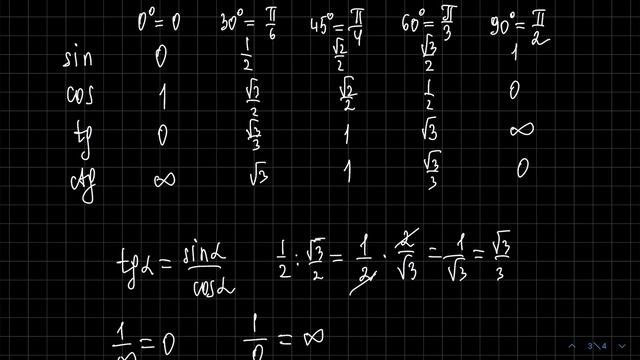 0° = 0 30° = π/6 45° = π/4 60° = π/3 90° = π/2
sin 0 1/2 √2/2 √3/2 1
cos 1 √3/2 √2/2 1/2 0
tg 0 √3/3 1 √3 ∞
ctg ∞ √3 1 √3/3 0
tgα = sinα/cosα 1/2 : √3/2 = 1/2 · 2/√3 = 1/√3 = √3/3
1/∞ = 0 1/0 = ∞
3\4